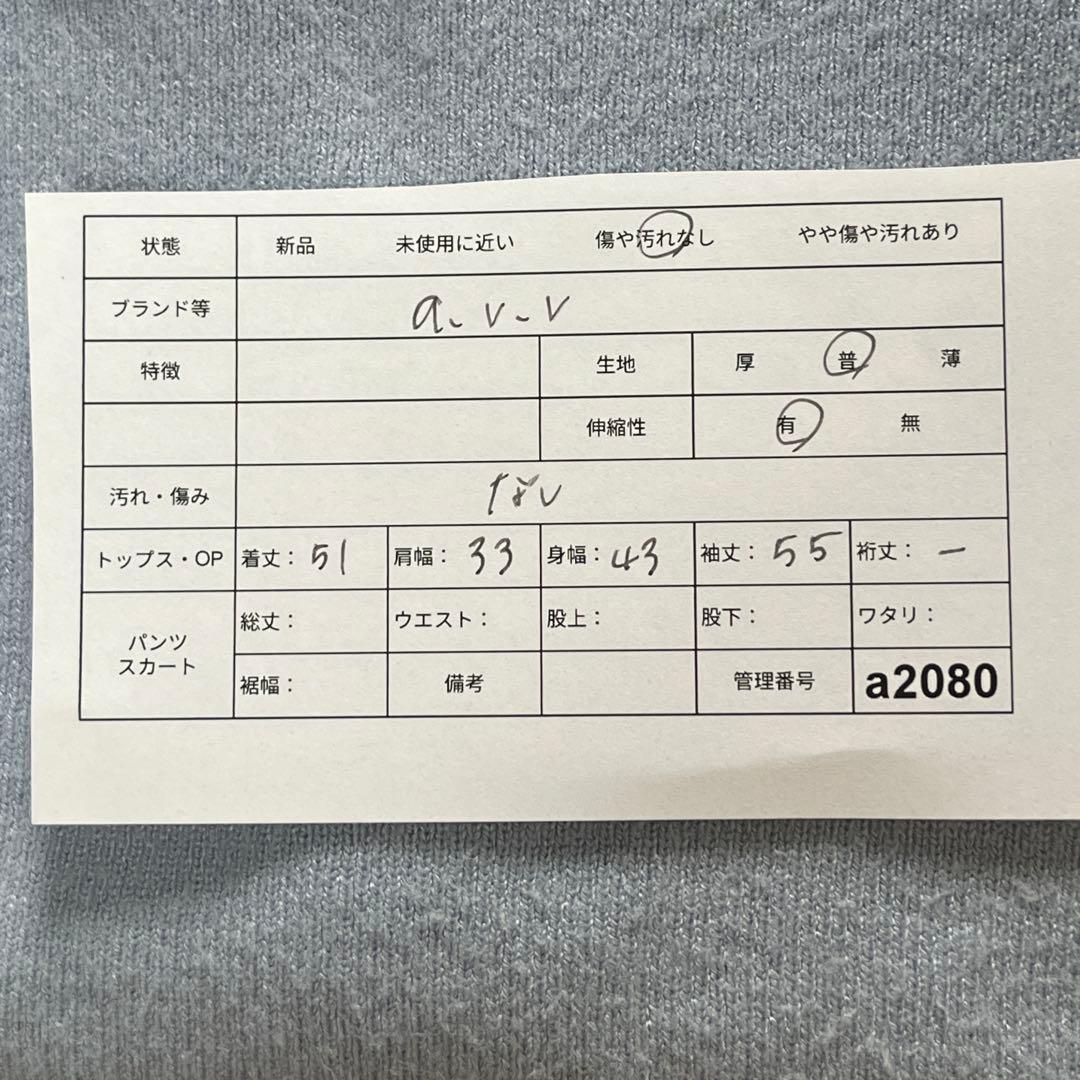 状態 新品 未使用に近い 傷や汚れなし やや傷や汚れあり
ブランド等 a.v.v
特徴 生地 厚 普 薄
伸縮性 有 無
汚れ・傷み なし
トップス・OP 着丈：51 肩幅：33 身幅：43 袖丈：55 裄丈：ー
パンツ
スカート
総丈： ウエスト： 股上： 股下： ワタリ：
裾幅： 備考 管理番号 a2080